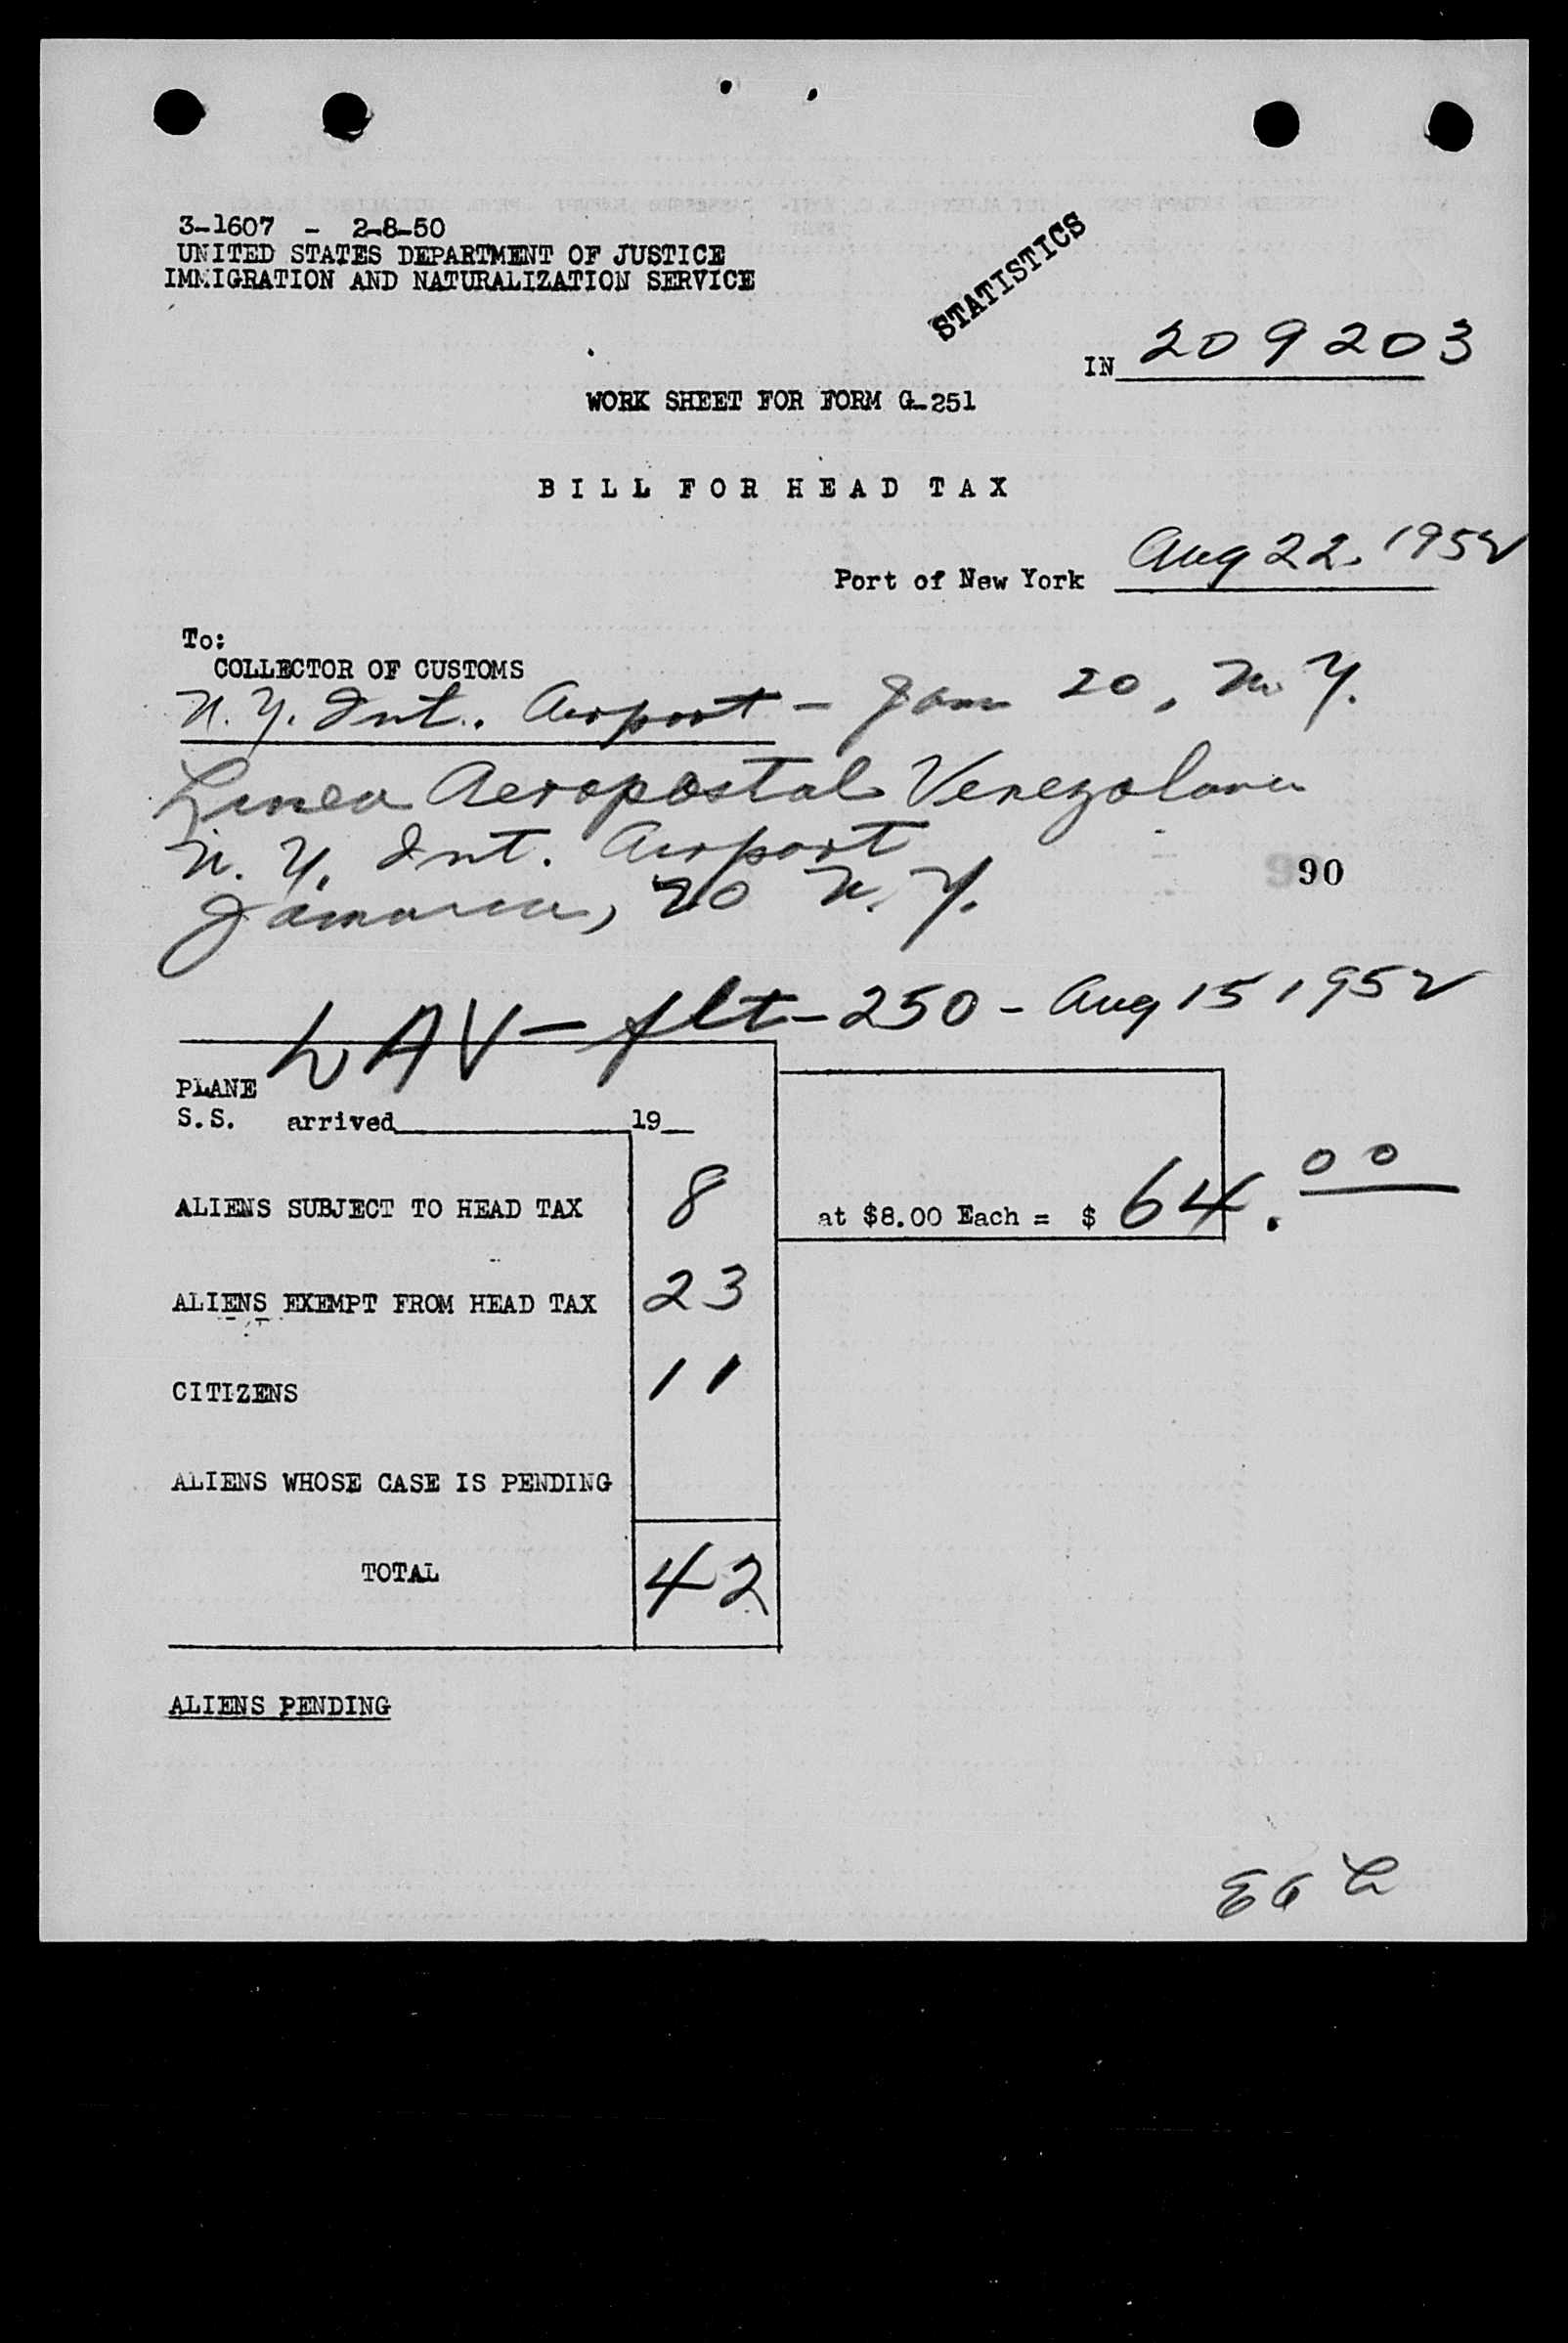 3-1607 - 2-8-50
UNITED STATES DEPARTMENT OF JUSTICE
IMMIGRATION AND NATURALIZATION SERVICE
STATISTICS
IN 209203
WORK SHEET FOR FORM G-251
BILL FOR HEAD TAX
Port of New York Aug 22, 1952
To:
COLLECTOR OF CUSTOMS
N.Y. Int. Airport - Jam 20, N.Y.
Linea Aeropostal Venezolana
N.Y. Int. Airport
90
Jamaica, 20 N.Y.
LAV - flt - 250 - Aug 15 1952
PLANE
S.S. arrived 19
ALIENS SUBJECT TO HEAD TAX 8 at $8.00 Each = $ 64.00
ALIENS EXEMPT FROM HEAD TAX 23
CITIZENS 11
ALIENS WHOSE CASE IS PENDING
TOTAL 42
ALIENS PENDING